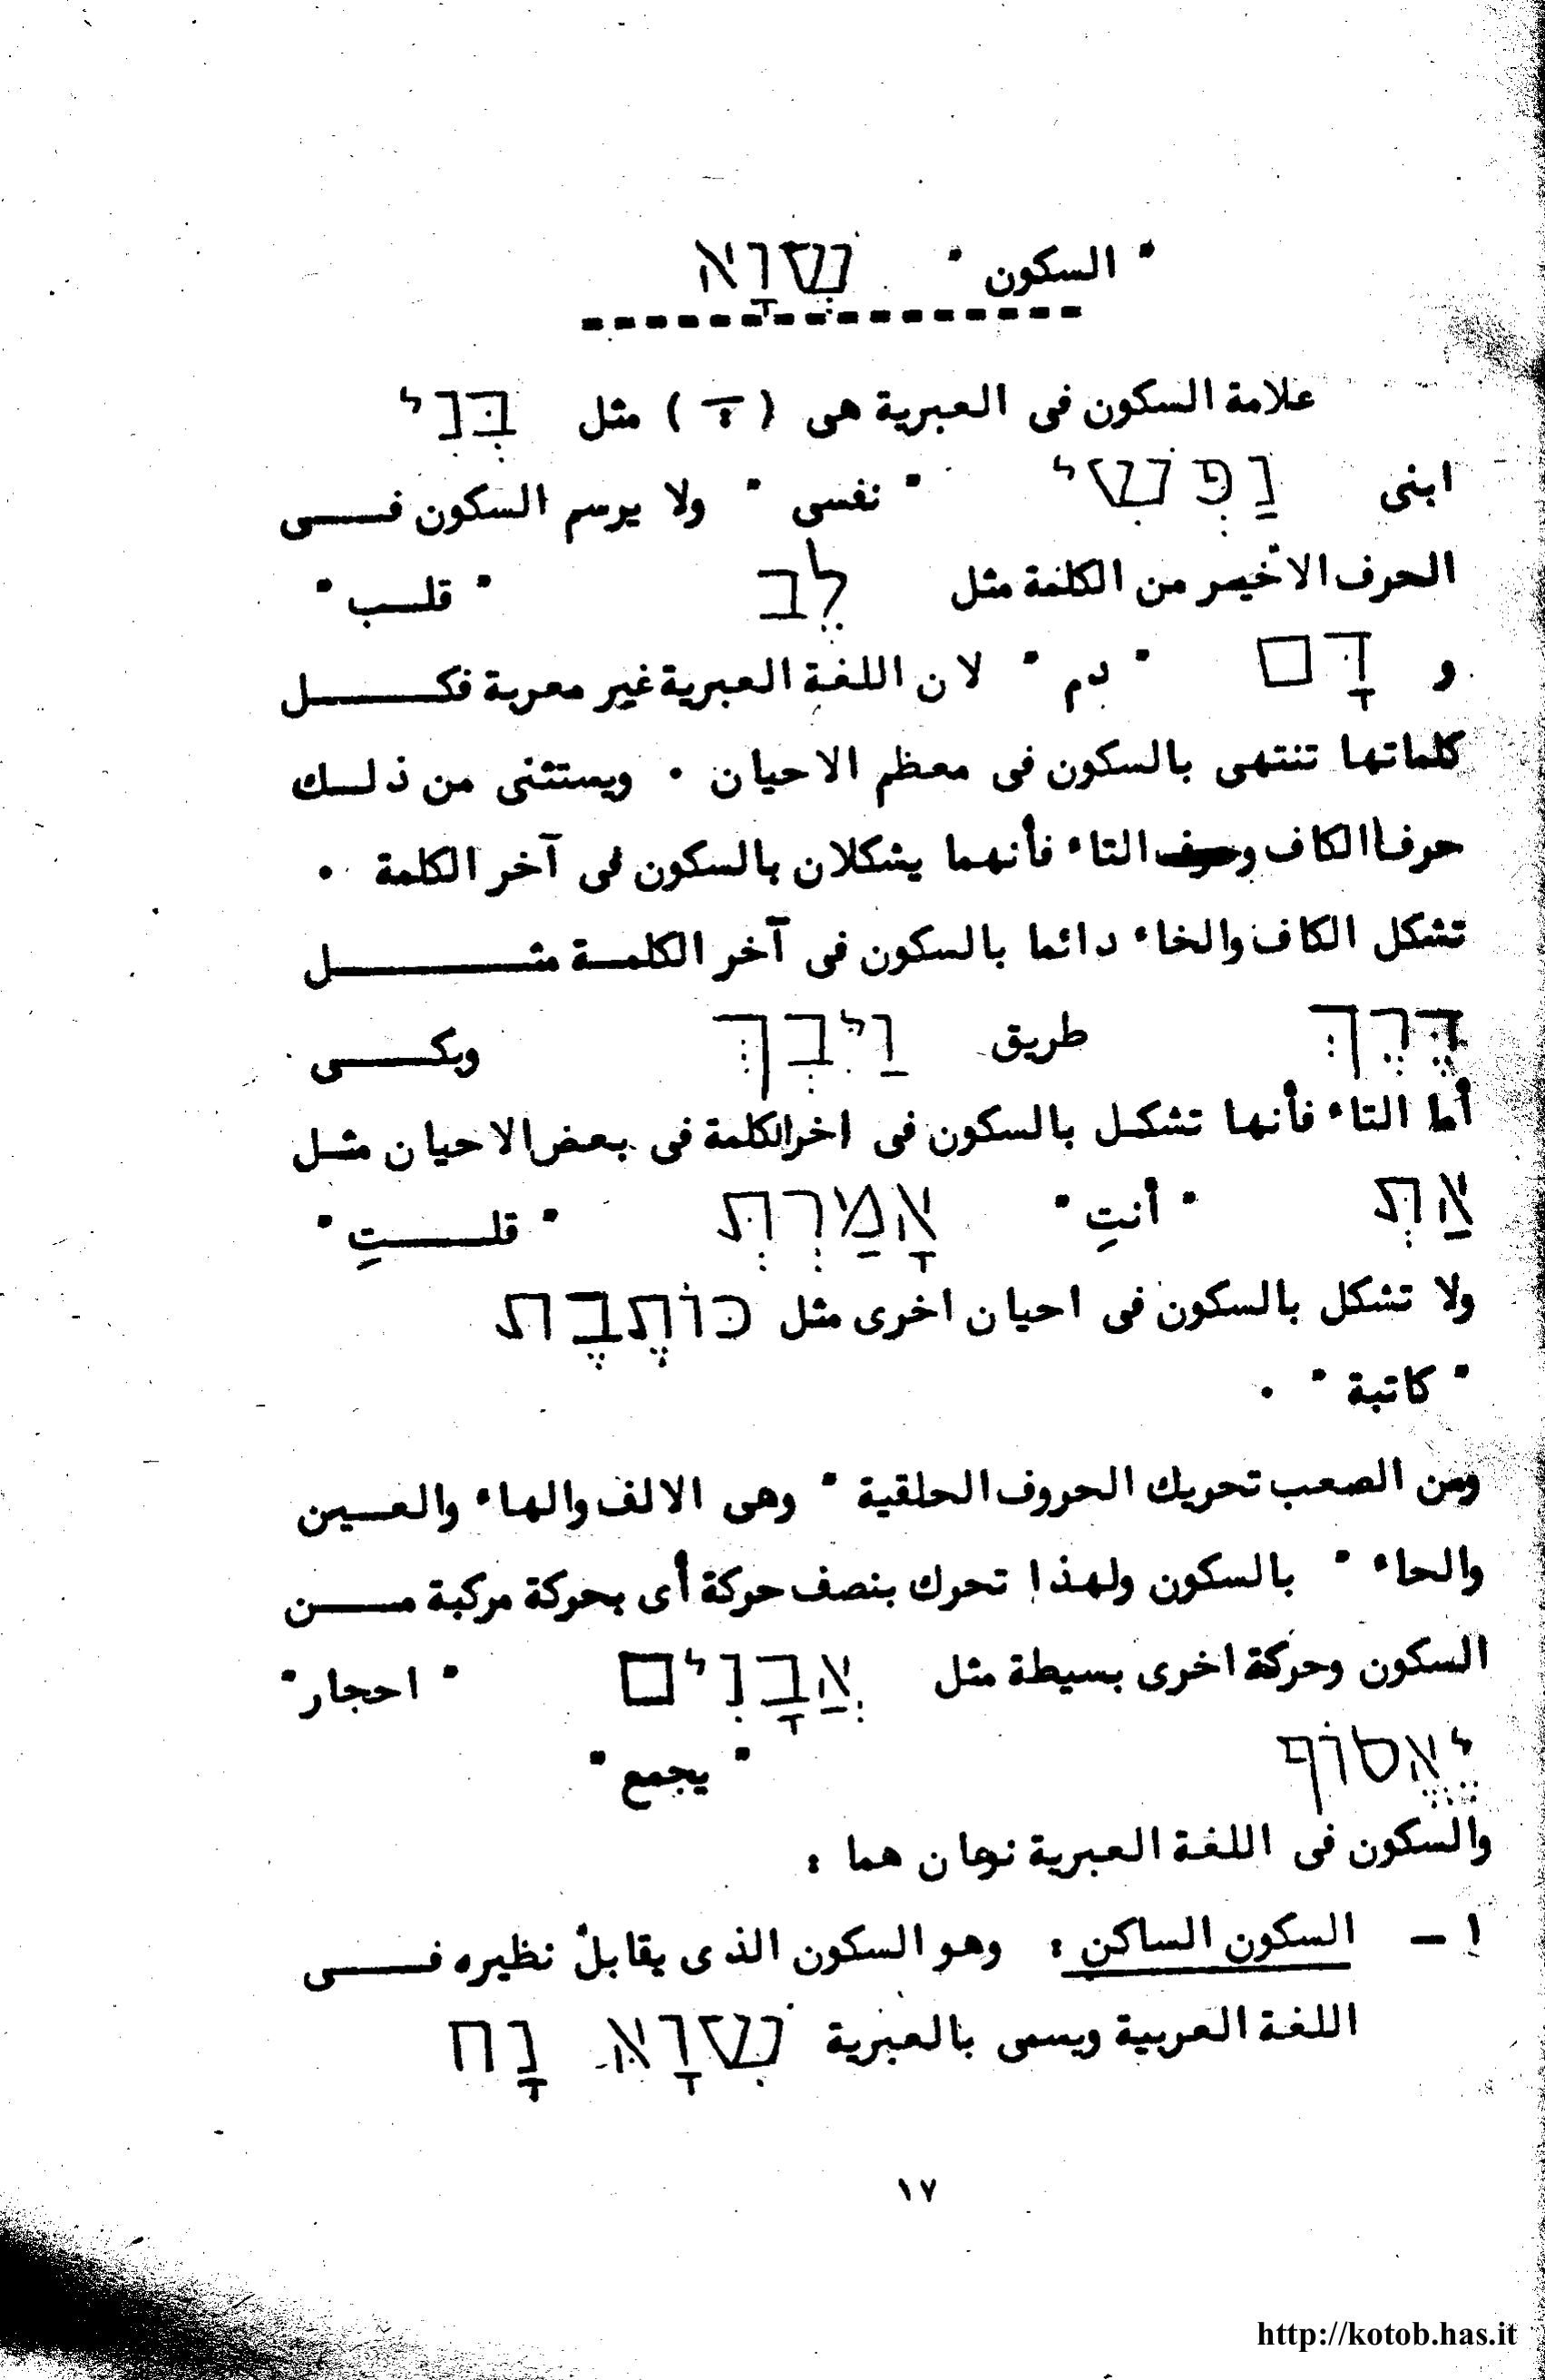 " السكون " שְׁוָא
علامة السكون فى العبرية هى ( ְ ) مثل בְּנִי
ابنى נַפְשִׁי " نفسى " ولا يرسم السكون فى
الحرف الأخير من الكلمة مثل לֵב " قلب "
و דָּם " دم " لان اللغة العبرية غير معربة فكل
كلماتها تنتهى بالسكون فى معظم الاحيان . ويستثنى من ذلك
حرفا الكاف والتاء فأنهما يشكلان بالسكون فى آخر الكلمة .
تشكل الكاف والخاء دائما بالسكون فى آخر الكلمة مثل
דֶּרֶךְ طريق וַיִּבְךְּ وبكى
أما التاء فأنها تشكل بالسكون فى اخر الكلمة فى بعض الاحيان مثل
אַתְּ " أنتِ " אָמַרְתְּ " قلتِ "
ولا تشكل بالسكون فى احيان اخرى مثل כּוֹתֶבֶת
" كاتبة " .
ومن الصعب تحريك الحروف الحلقية " وهى الالف والهاء والعين
والحاء " بالسكون ولهذا تحرك بنصف حركة أى بحركة مركبة من
السكون وحركة اخرى بسيطة مثل אֲבָנִים " احجار "
יֶאֱסוֹף " يجمع "
والسكون فى اللغة العبرية نوعان هما :
١ – السكون الساكن : وهو السكون الذى يقابل نظيره فى
اللغة العربية ويسمى بالعبرية שְׁוָא נָח
١٧
http://kotob.has.it